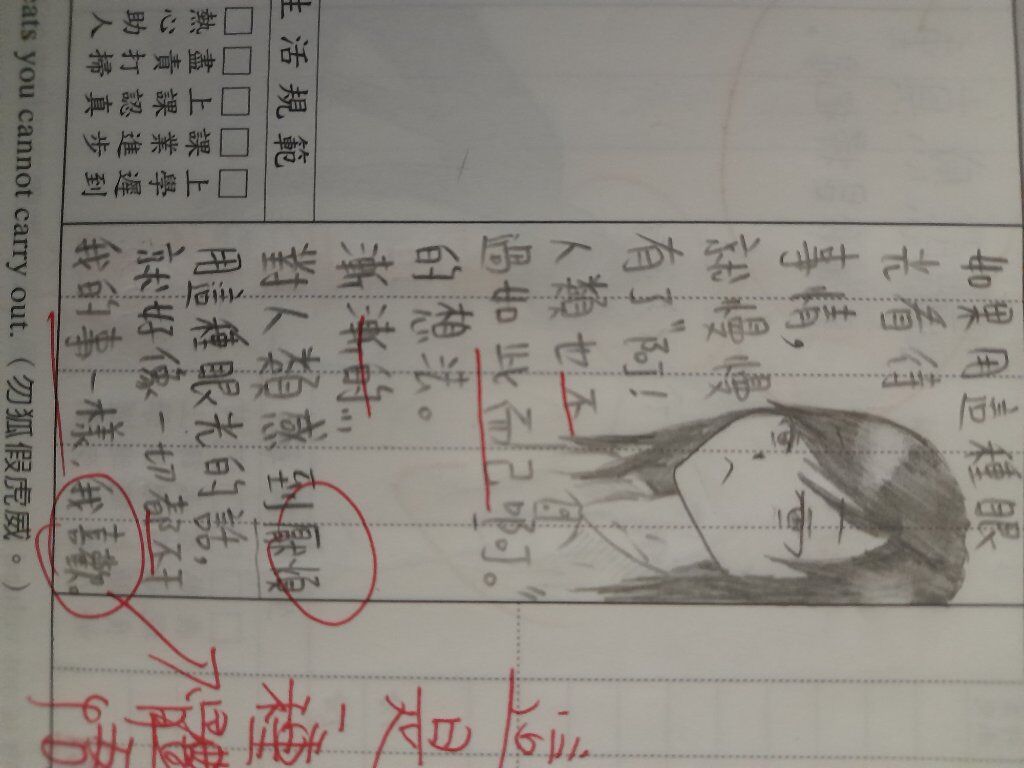 生活規範
熱心助人
盡責打掃
上課認真
課業進步
上學遲到
如果用這種眼
光看待
事情,
就慢慢
有了“阿!
人類也不
過如此而已啊。”
的想法。
漸漸的,
對人類感到厭煩
用這種眼光的話,
就好像一切都不干
我的事一樣,我喜歡。
這
是
一種
you cannot carry out.(勿狐假虎威。)